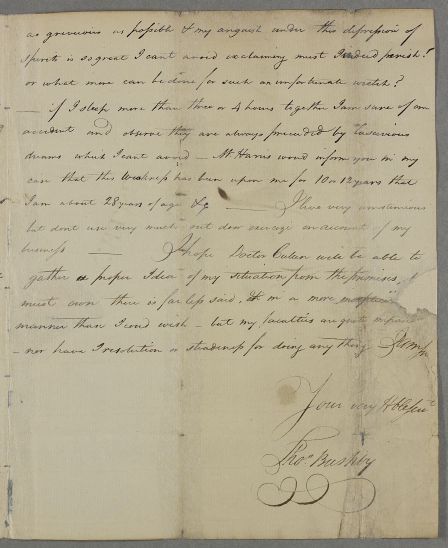 as grievious as possible & my anguish under this depression of
spirits is so great I cant avoid exclaiming must I indeed perish!
or what more can be done for such an unfortunate wretch?
— if I sleep more than three or 4 hours together I am sure of an
accident and observe they are always preceeded by lascivious
dreams which I cant avoid — Mr Harris would inform you in my
case that this weakness has been upon me for 10 or 12 years that
I am about 28 years of age &c — I live very
but dont use very much out door exercise on account of my
business — I hope Doctor Cullen will be able to
gather a proper Idea of my situation from the premises, I
must own there is far less said, & in a more
manner than I coud wish — but my faculties are quite
— nor have I resolution or steadiness for doing any thing
Your very Hble Servt
Thos. Bushby